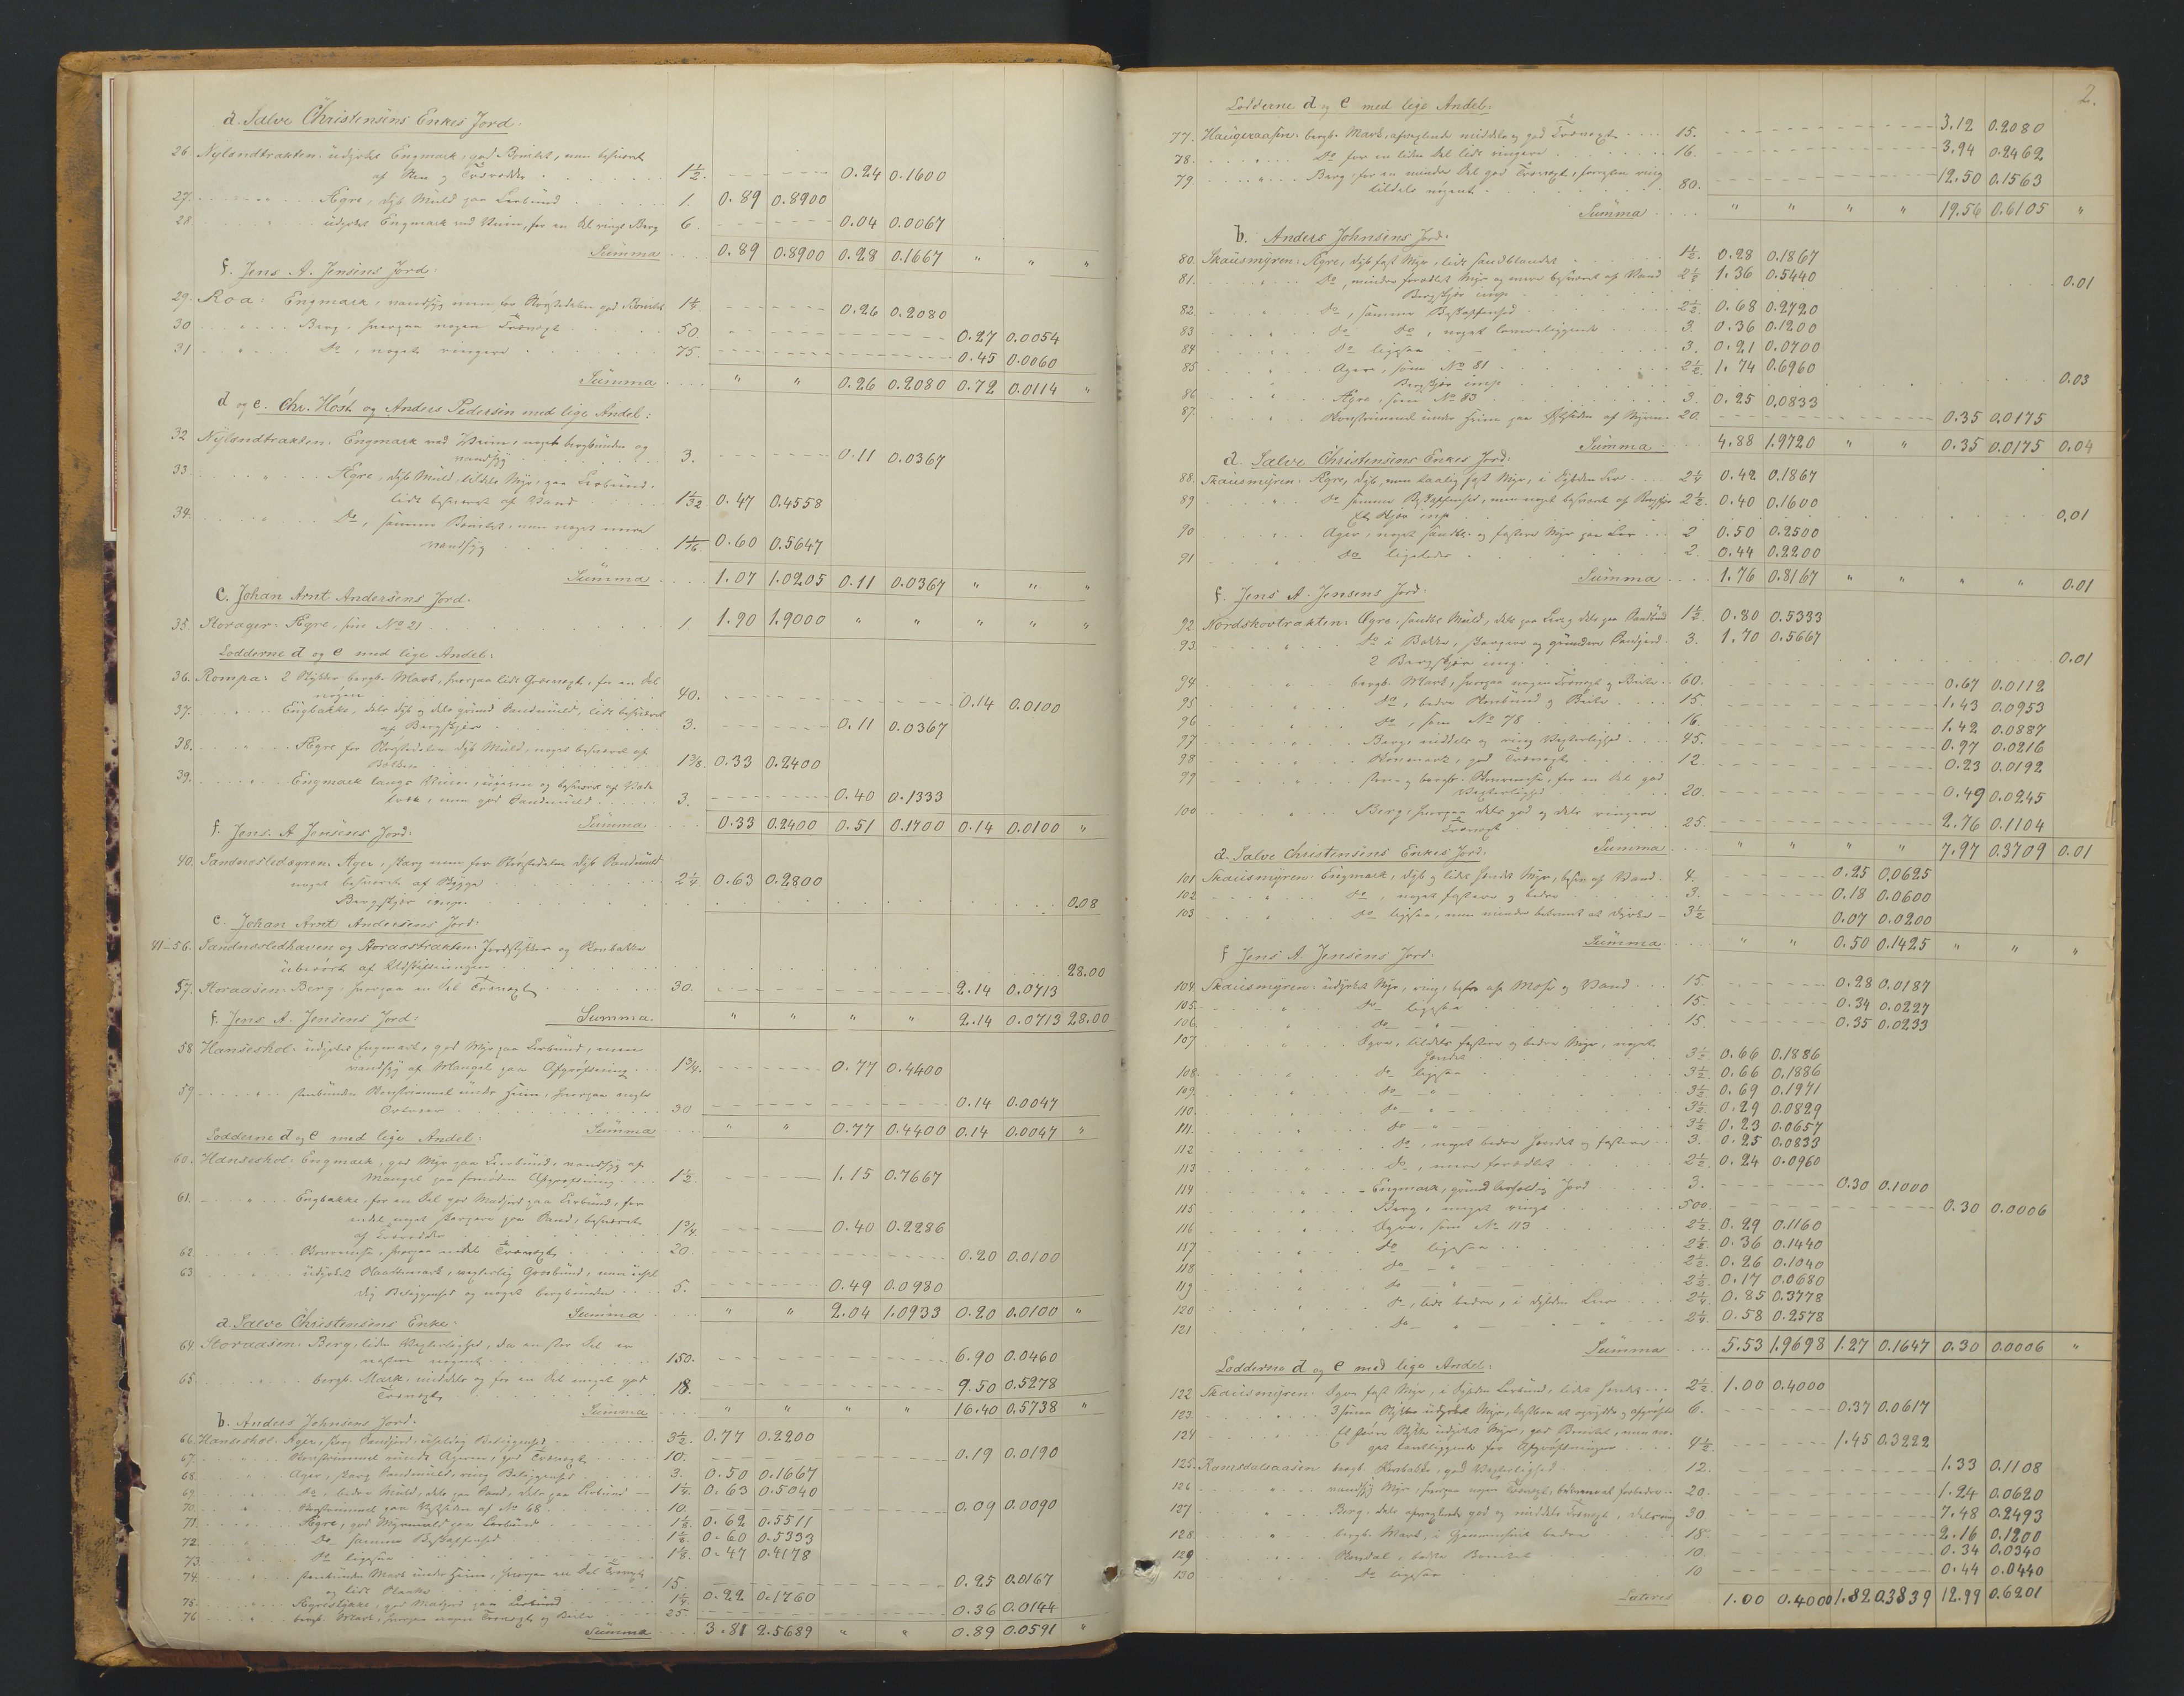 d. Salve Christensens Enkes Jord.
26. Nylandtrakten: udyrket Engmark, god Bonitet, men besværet
af Sten og Trærødder 1½. 0.24 0.1600
27. Agre, dyb Muld paa Leerbund 1. 0.89 0.8900
28. udyrket Engmark ved Veien, for en Del ringe Berg 6. 0.04 0.0067
Summa 0.89 0.8900 0.28 0.1667 " " "
f. Jens A. Jensens Jord.
29. Roa: Engmark, vandsyg men for Størstedelen god Bonitet 1¼ 0.26 0.2080
30 " Berg, hvorpaa nogen Trævæxt 50. 0.27 0.0054
31 " Do, noget ringere 75. 0.45 0.0060
Summa " " 0.26 0.2080 0.72 0.0114 "
d og e. Chr. Höst og Anders Pedersen med lige Andel:
32 Nylandtrakten: Engmark ved Veien, noget bergbunden og
vandsyg 3. 0.11 0.0367
33. Agre, dyb Muld, tildels Myr, paa Leerbund.
lidt besværet af Vand 1 1/32 0.47 0.4558
34. Do, samme Bonitet, men noget mere
vandsyg 1 1/16 0.60 0.5647
Summa 1.07 1.0205 0.11 0.0367 " " "
c. Johan Arnt Andersens Jord.
35. Storager: Agre, som No 21 1 1.90 1.9000 " " " " "
Lodderne d og e med lige Andel:
36. Rompa: 2 Stykker bergb. Mark, hvorpaa lidt Græsvæxt, for en Del
nøgen 40. 0.14 0.0100
37. Engbakke, dels dyb og dels grund Sandmuld, lidt besværet
af Bergskjær 3. 0.11 0.0367
38. Agre for Størstedelen dyb Muld, noget besværet af
Bakken 1⅜. 0.33 0.2400
39. Engmark langs Veien, ujævn og besværet af
men god Sandmuld 3. 0.40 0.1333
Summa 0.33 0.2400 0.51 0.1700 0.14 0.0100 "
f. Jens. A Jensens Jord:
40. Sandnæsledsgren: Ager, skarp men for Størstedelen dyb Sandmuld
noget besværet af Skygge 2¼ 0.63 0.2800
Bergskjær imp. 0.08
c. Johan Arnt Andersens Jord:
41–56. Sandnæsledhaven og Storaastrakten: Jordstykker og
uberørt af Udskiftningen 28.00
57. Storaasen: Berg, hvorpaa en Del Trævæxt 30. 2.14 0.0713
f. Jens A. Jensens Jord: Summa. " " " " 2.14 0.0713 28.00
58 Hanseshol: udyrket Engmark, god Myr paa Leerbund, men
vandsyg af Mangel paa Afgrøftning 1¾. 0.77 0.4400
59. stenbunden Skovstrimmel under Heien, hvorpaa nogle
Trærær 30 0.14 0.0047
Lodderne d og e med lige Andel: Summa " " 0.77 0.4400 0.14 0.0047 "
60. Hanseshol: Engmark, god Myr paa Leerbund, vandsyg af
Mangel paa fornøden Afgrøftning 1½ 1.15 0.7667
61. Engbakke, for en Del god Madjord paa Leerbund, for
endel noget skarpere paa Sand, besværet
af Trærødder 1¾. 0.40 0.2286
62. hvorpaa endel Trævæxt 20. 0.20 0.0100
63. udyrket Slaattemark, væxterlig Græsbund, men uhel-
dig Beliggenhed og noget bergbunden 5. 0.49 0.0980
Summa " " 2.04 1.0933 0.20 0.0100 "
d. Salve Christensens Enke:
64. Storaasen: Berg, liden Væxterlighed, da en stor Del er
næsten nøgent 150. 6.90 0.0460
65. bergb. Mark, middels og for en Del meget god
Trævæxt 18. 9.50 0.5278
Summa " " " " 16.40 0.5738 "
b. Anders Johnsens Jord:
66. Hanseshol: Ager, skarp Sandjord, uheldig Beliggenhed 3½. 0.77 0.2200
67. Skovstrimmel under Ageren, god Trævæxt 10. 0.19 0.0190
68. Ager, skarp Sandmuld, ring Beliggenhed 3. 0.50 0.1667
69. Do, bedre Muld, dels paa Sand, dels paa Leerbund 1¼. 0.63 0.5040
70. Skovstrimmel paa Østsiden af No 68 10. 0.09 0.0090
71. Agre, god Myrmuld paa Leerbund 1⅛. 0.62 0.5511
72. Do samme Beskaffenhed 1⅛. 0.60 0.5333
73. Do ligesaa 1⅛. 0.47 0.4178
74. stenbunden Mark under Heien, hvorpaa en Del Trævæxt
og lidt Slaatte 15. 0.25 0.0167
75. Agerstykke, god Madjord paa Leerbund 1¼. 0.22 0.1760
76 bergb. Mark, hvorpaa nogen Trævæxt og Beite 25 0.36 0.0144
Summa 3.81 2.5689 " " 0.89 0.0591 "
2.
Lodderne d og e med lige Andel:
77. Haugeraasen: bergb. Mark, afvexlende middels og god Trævæxt 15. 3.12 0.2080
78. Do for en liden Del lidt ringere 16. 3.94 0.2462
79. Berg, for en mindre Del god Trævæxt, forresten ring
tildels nøgent 80. 12.50 0.1563
Summa " " " " 19.56 0.6105 "
b. Anders Johnsens Jord:
80. Skausmyren: Agre, dyb fast Myr, lidt sandblandet 1½. 0.28 0.1867
81. Do, mindre forædlet Myr og mere besværet af Vand 2½ 1.36 0.5440
Bergskjær imp 0.01
82. Do, samme Beskaffenhed 2½ 0.68 0.2720
83 Do Do, noget lavereliggende 3. 0.36 0.1200
84 Do ligesaa 3. 0.21 0.0700
85 Ager, som No 81 2½. 1.74 0.6960
Bergskjær imp 0.03
86 Agre, som No 83 3. 0.25 0.0833
87. Skovstrimmel under Heien paa Østsiden af Myren 20. 0.35 0.0175
Summa 4.88 1.9720 " " 0.35 0.0175 0.04
d. Salve Christensens Enkes Jord:
88. Skausmyren: Agre, dyb, men taalig fast Myr, i Dybden Leer 2¼ 0.42 0.1867
89 Do samme Beskaffenhed, men noget besværet af Bergskjær 2½. 0.40 0.1600
Et Skjær imp 0.01
90 Ager, noget sandbl. og fastere Myr paa Leer 2 0.50 0.2500
91 Do ligeledes 2. 0.44 0.2200
Summa 1.76 0.8167 " " " " 0.01
f. Jens A. Jensens Jord:
92 Nordskovtrakten: Agre, sandbl. Muld, dels paa Leer og dels paa Sandbund 1½. 0.80 0.5333
93. Do i Bakke, skarpere og grundere Sandjord 3. 1.70 0.5667
2 Bergskjær imp. 0.01
94 bergb. Mark, hvorpaa nogen Trævæxt og Beite 60. 0.67 0.0112
95 Do, bedre Skovbund og Beite 15. 1.43 0.0953
96 Do, som No 78 16. 1.42 0.0887
97 Berg, middels og ring Væxterlighed 45. 0.97 0.0216
98 Skovmark, god Trævæxt 12. 0.23 0.0192
99 sten og bergb. for en Del god
Væxterlighed 20. 0.49 0.0245
100 Berg, hvorpaa dels god og dels ringere
Trævæxt 25. 2.76 0.1104
d. Salve Christensens Enkes Jord: Summa " " " " 7.97 0.3709 0.01
101 Skausmyren: Engmark, dyb og lidt sandet Myr, besv. af Vand 4. 0.25 0.0625
102 Do, noget fastere og bedre 3. 0.18 0.0600
103 Do ligesaa, men mindre bekvemt at dyrke 3½ 0.07 0.0200
Summa " " 0.50 0.1425 " " "
f Jens A. Jensens Jord:
104. Skausmyren: udyrket Myr, ring, besv. af Mose og Vand 15. 0.28 0.0187
105. Do ligesaa 15. 0.34 0.0227
106. Do — " — 15. 0.35 0.0233
107 Agre, tildels fastere og bedre Myr, noget
sandet 3½ 0.66 0.1886
108. Do ligesaa 3½ 0.66 0.1886
109. Do — " — 3½ 0.69 0.1971
110. Do — " — 3½ 0.29 0.0829
111. Do — " — 3½ 0.23 0.0657
112 Do, noget bedre sandet og fastere 3. 0.25 0.0833
113 Do, mere forædlet 2½ 0.24 0.0960
114 Engmark, grund Jord 3. 0.30 0.1000
115 Berg, meget ringe 500. 0.30 0.0006
116 Agre, som No 113 2½ 0.29 0.1160
117 Do ligesaa 2½ 0.36 0.1440
118 Do — " — 2½ 0.26 0.1040
119 Do — " — 2½ 0.17 0.0680
120 Do, lidt bedre, i Dybden Leer 2¼ 0.85 0.3778
121 Do — " — " — " 2¼. 0.58 0.2578
Summa 5.53 1.9698 1.27 0.1647 0.30 0.0006 "
Lodderne d og e med lige Andel:
122 Skausmyren: Agre fast Myr, i Dybden Leerbund, lidt sandet 2½ 1.00 0.4000
123. 3 smaa Stykker udyrket Myr, 6. 0.37 0.0617
124 Et større Stykke udyrket Myr, god Bonitet, men no-
get lavtliggende for Afgrøftningen 4½ 1.45 0.3222
125. Ramsdalsaasen bergb. Skovbakke, god Væxterlighed 12. 1.33 0.1108
126 vandsyg Myr, hvorpaa nogen Trævæxt, 20. 1.24 0.0620
127 Berg, dels afvexlende god og middels Trævæxt, dels ring 30 7.48 0.2493
128 bergb. Mark, i Gjennemsnit bedre 18. 2.16 0.1200
129 Skovdal, bedste Bonitet 10. 0.34 0.0340
130 Do ligesaa 10 0.44 0.0440
Lateris 1.00 0.4000 1.82 0.3839 12.99 0.6201